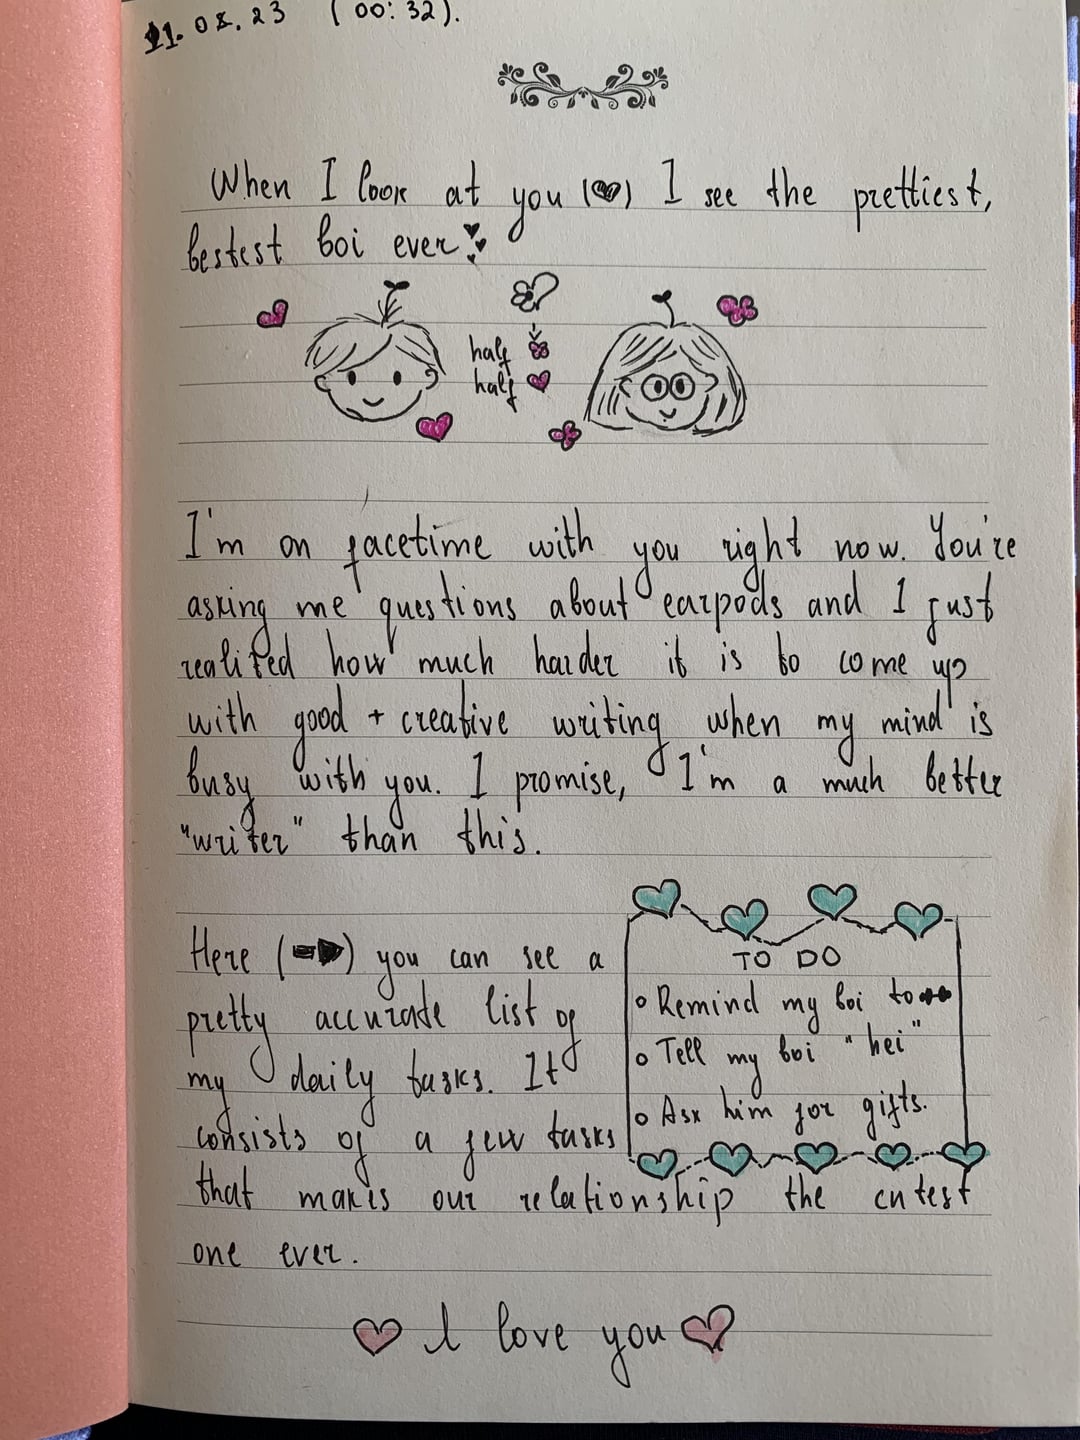 11.08.23 (00:32).
When I look at you (♥) I see the prettiest,
bestest boi ever
half
half
I'm on facetime with you right now. You're
asking me questions about earpods and I just
realized how much harder it is to come up
with good + creative writing when my mind is
busy with you. I promise, I'm a much better
"writer" than this.
Here (➡) you can see a
pretty accurate list of
my daily tasks. It
consists of a few tasks
that makes our relationship the cutest
one ever.
TO DO
• Remind my boi to
• Tell my boi "hei"
• Ask him for gifts.
I love you